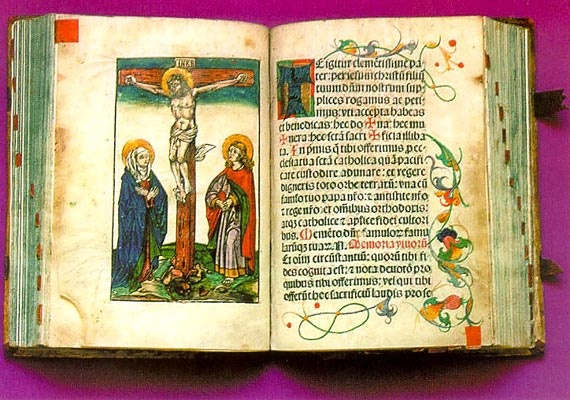 INRI
TE igitur clemētissime pa
ter: per iesum christū filiū
tuum dn̄m nostrum sup
plices rogamus ac peti
mus: vti accepta habeas
et benedicas: hec do✠na: hec mu
✠nera: hec scā sacri✠ficia illiba
ta. In primis q̄ tibi offerimus p ec
clesia tua scā catholica quā pacifi
care custodire, adunare: et regere
digneris toto orbe terrarū: vna cū
famulo tuo papa nr̄o: ⁊ antistite nr̄o:
⁊ rege nr̄o: et om̄ibus orthodoxis:
atqȝ catholice ⁊ aplice fidei cultori
bus. Memēto dn̄e famulorū famu
larūqȝ tuarū. N. Memoria viuorū
Et oīm circūstantiū: quorū tibi fi
des cognita est: ⁊ nota deuotō: pro
quibus tibi offerimus: vel qui tibi
offerūt hoc sacrificiū laudis pro se